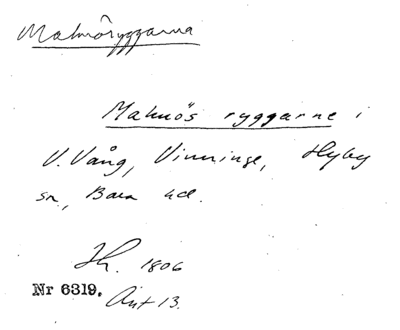 Malmöryggarna
Malmös ryggarne i
V. Vång, Vinninge, Hyby
sn, Bara hd.
Sk. 1806
Nr 6319. Akt 13.